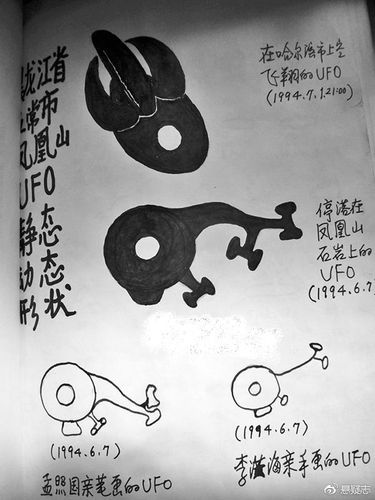 黑龙江省
五常市
凤凰山
UFO
静态
动态
形状
在哈尔滨市上空
飞翔的UFO
(1994.7.1.21:00)
停落在
凤凰山
石岩上的
UFO
(1994.6.7)
(1994.6.7)
孟照国亲笔画的UFO
(1994.6.7)
李海亲手画的UFO
悬疑志